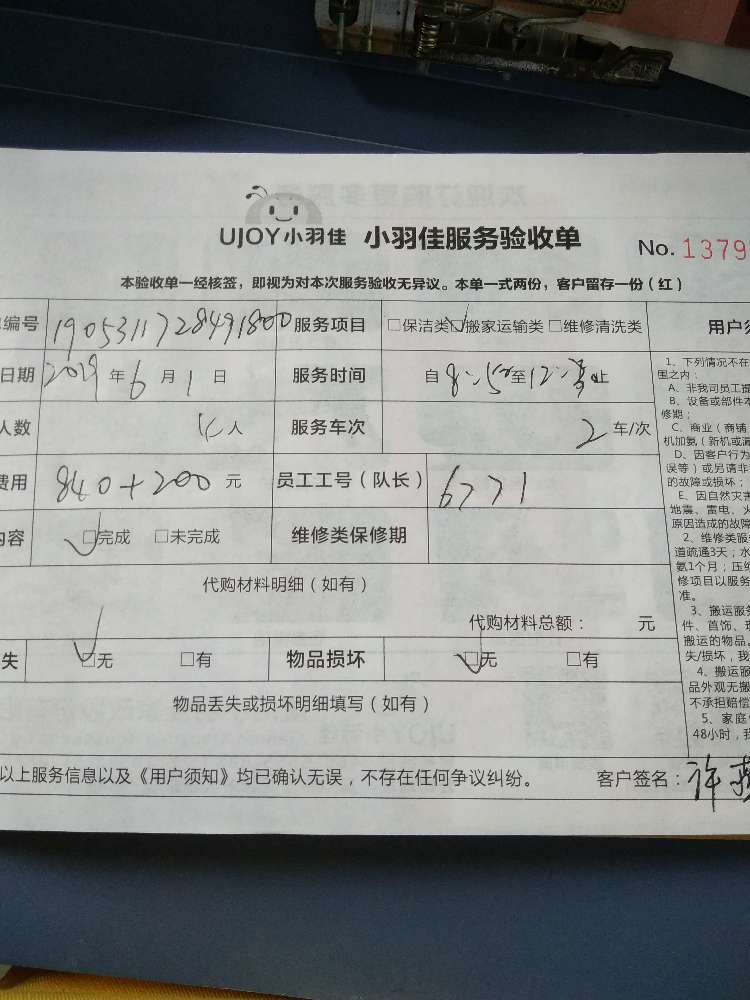 UJOY小羽佳 小羽佳服务验收单 No. 1379
本验收单一经核签，即视为对本次服务验收无异议。本单一式两份，客户留存一份（红）
编号 1905311728491800 服务项目 □保洁类 ☑搬家运输类 □维修清洗类 用户须
日期 2019 年 6 月 1 日 服务时间 自 8:50 至 12: 止
人数 人 服务车次 2 车/次
费用 840+200 元 员工工号（队长） 6771
内容 ☑完成 □未完成 维修类保修期
代购材料明细（如有）
代购材料总额： 元
失 ☑无 □有 物品损坏 ☑无 □有
物品丢失或损坏明细填写（如有）
以上服务信息以及《用户须知》均已确认无误，不存在任何争议纠纷。 客户签名：许燕
1、下列情况不在
围之内：
A、非我司员工
B、设备或部件本
修期；
C、商业（商铺
机加氨（新机或漏
D、因客户行为
误等）或另请非
的故障或损坏；
E、因自然灾害
地震、雷电、火
原因造成的故障
2、维修类服
道疏通3天；水
氨1个月；压缩
修项目以服务
准。
3、搬运服务
件、首饰、
搬运的物品。
失/损坏，我
4、搬运服
品外观无
不承担赔偿
5、家庭
48小时，我